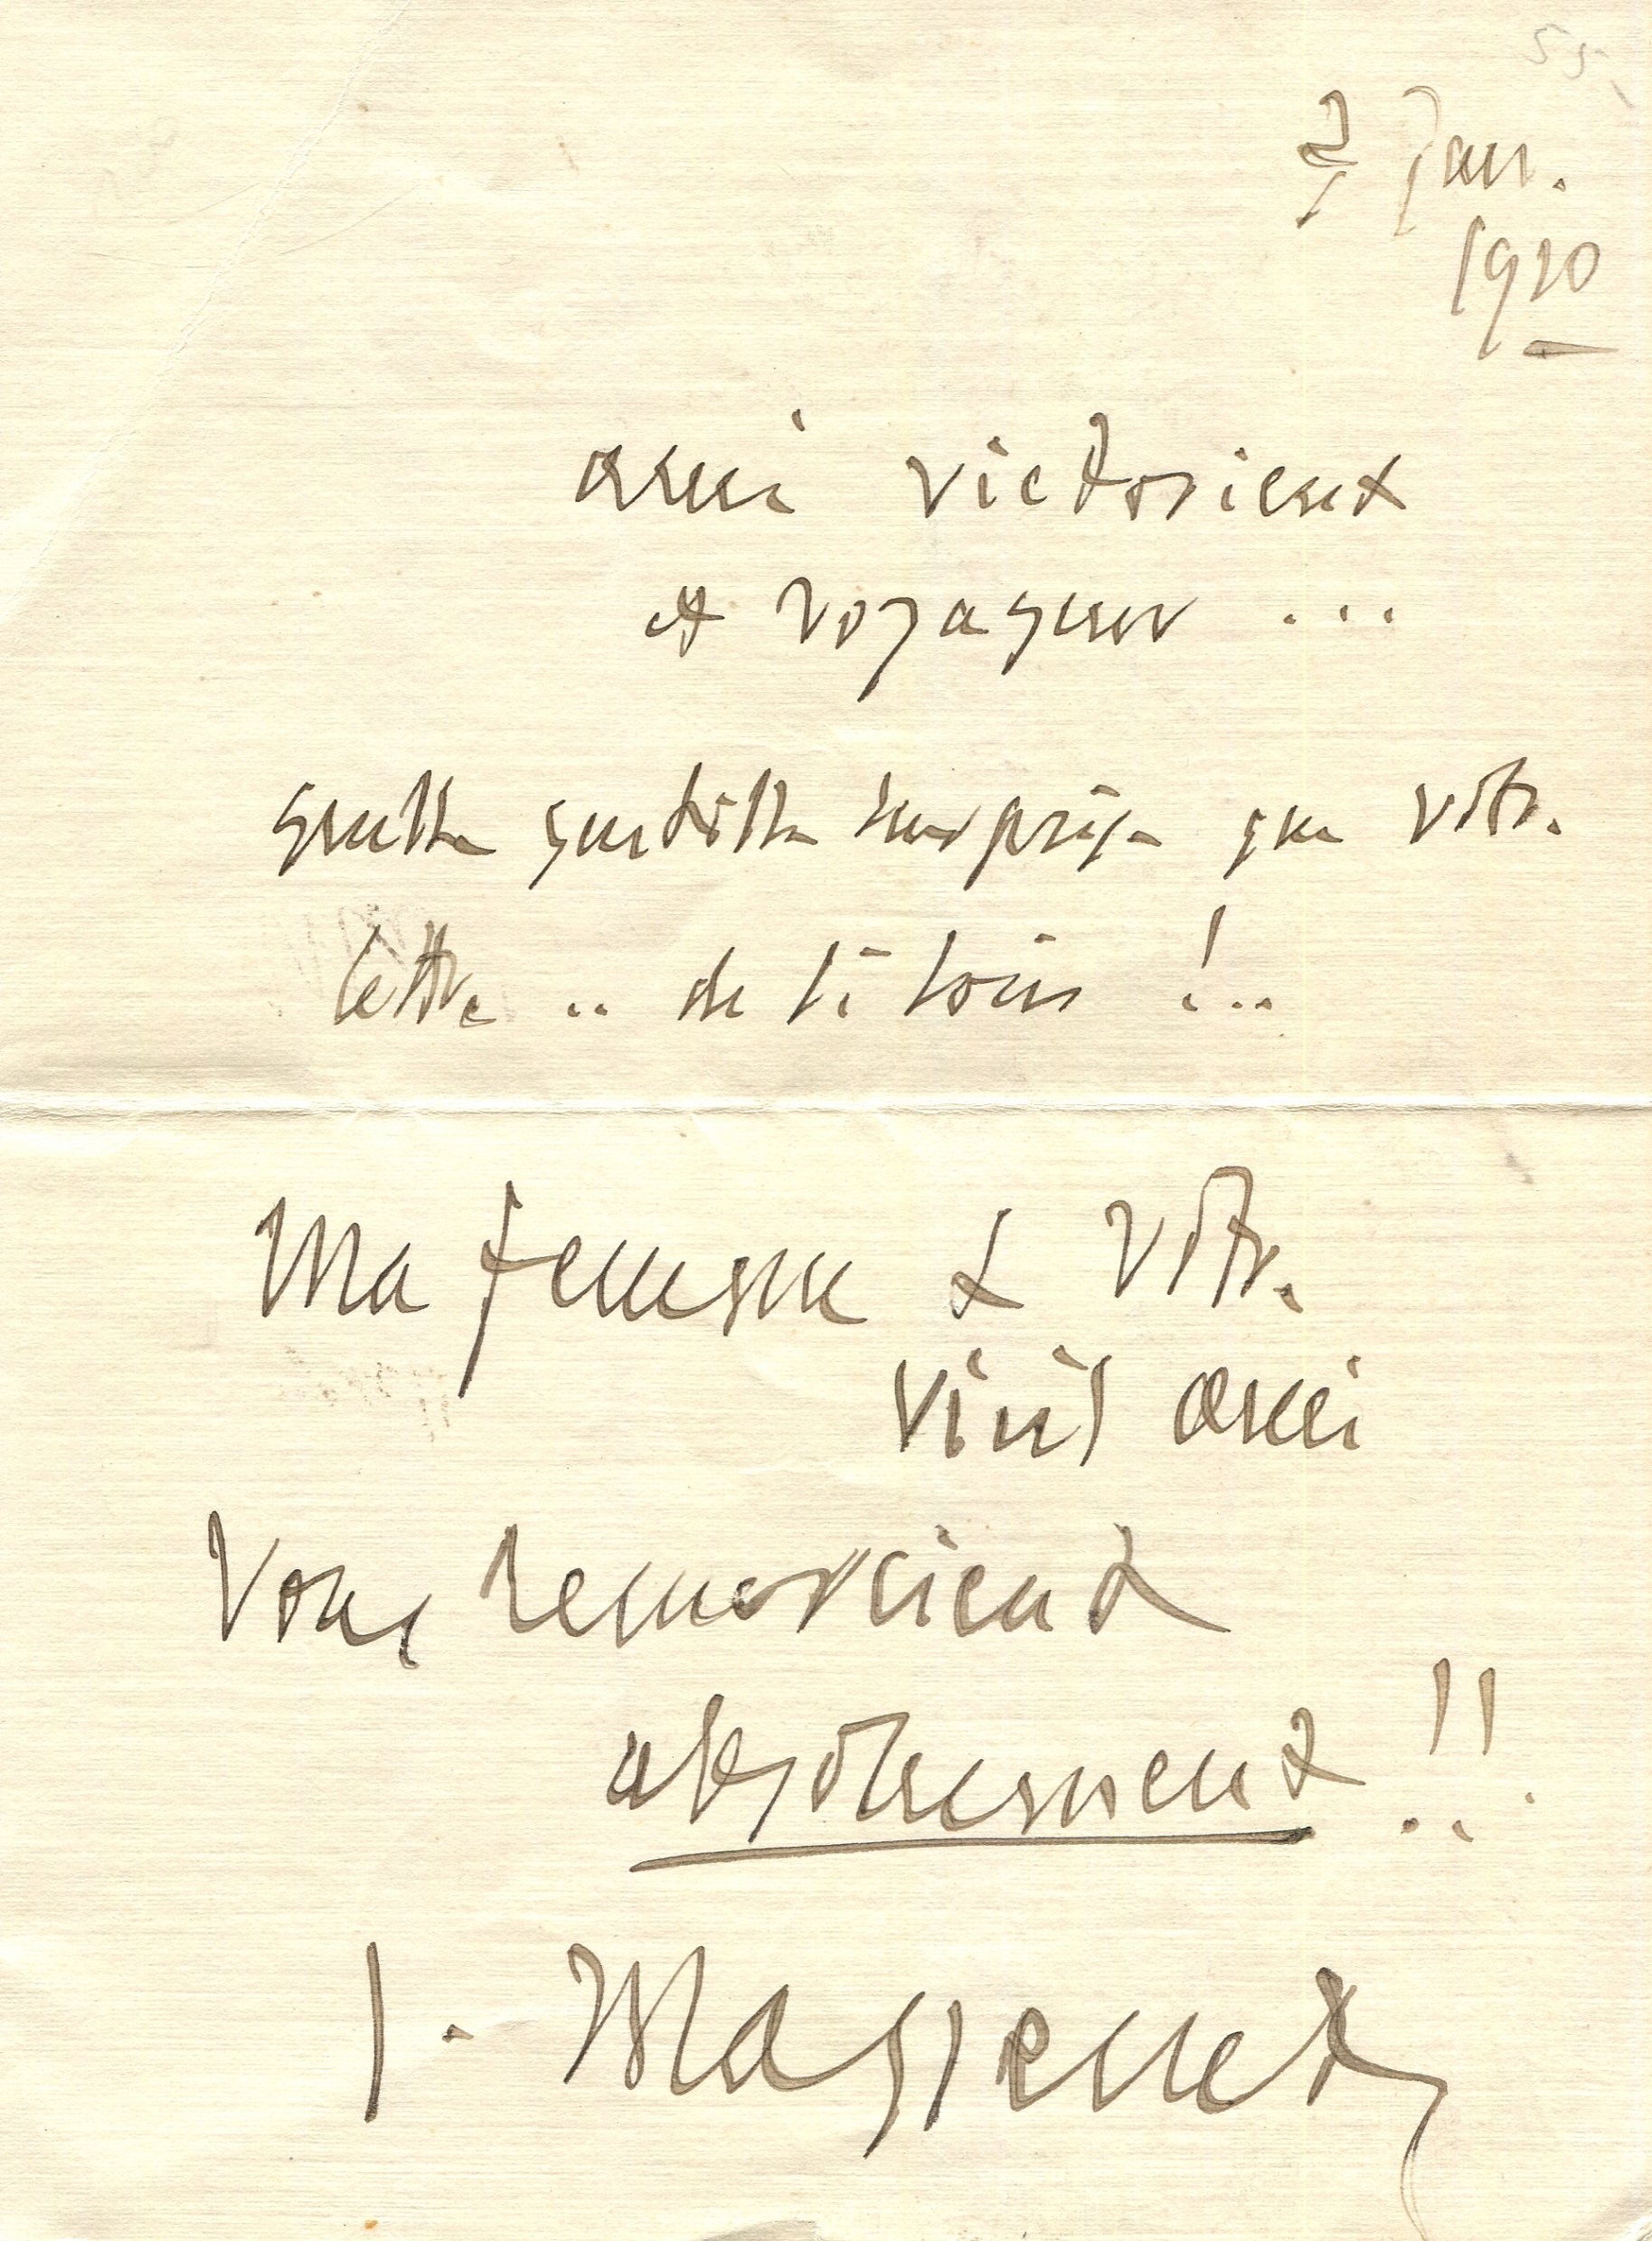 55
7 Jan.
1910
ami victorieux
et voyageur ...
quelle gentille surprise que votre
lettre .. de si loin !..
Ma femme & votre
vieil ami
vous remercient
absolument !!
J. Massenet